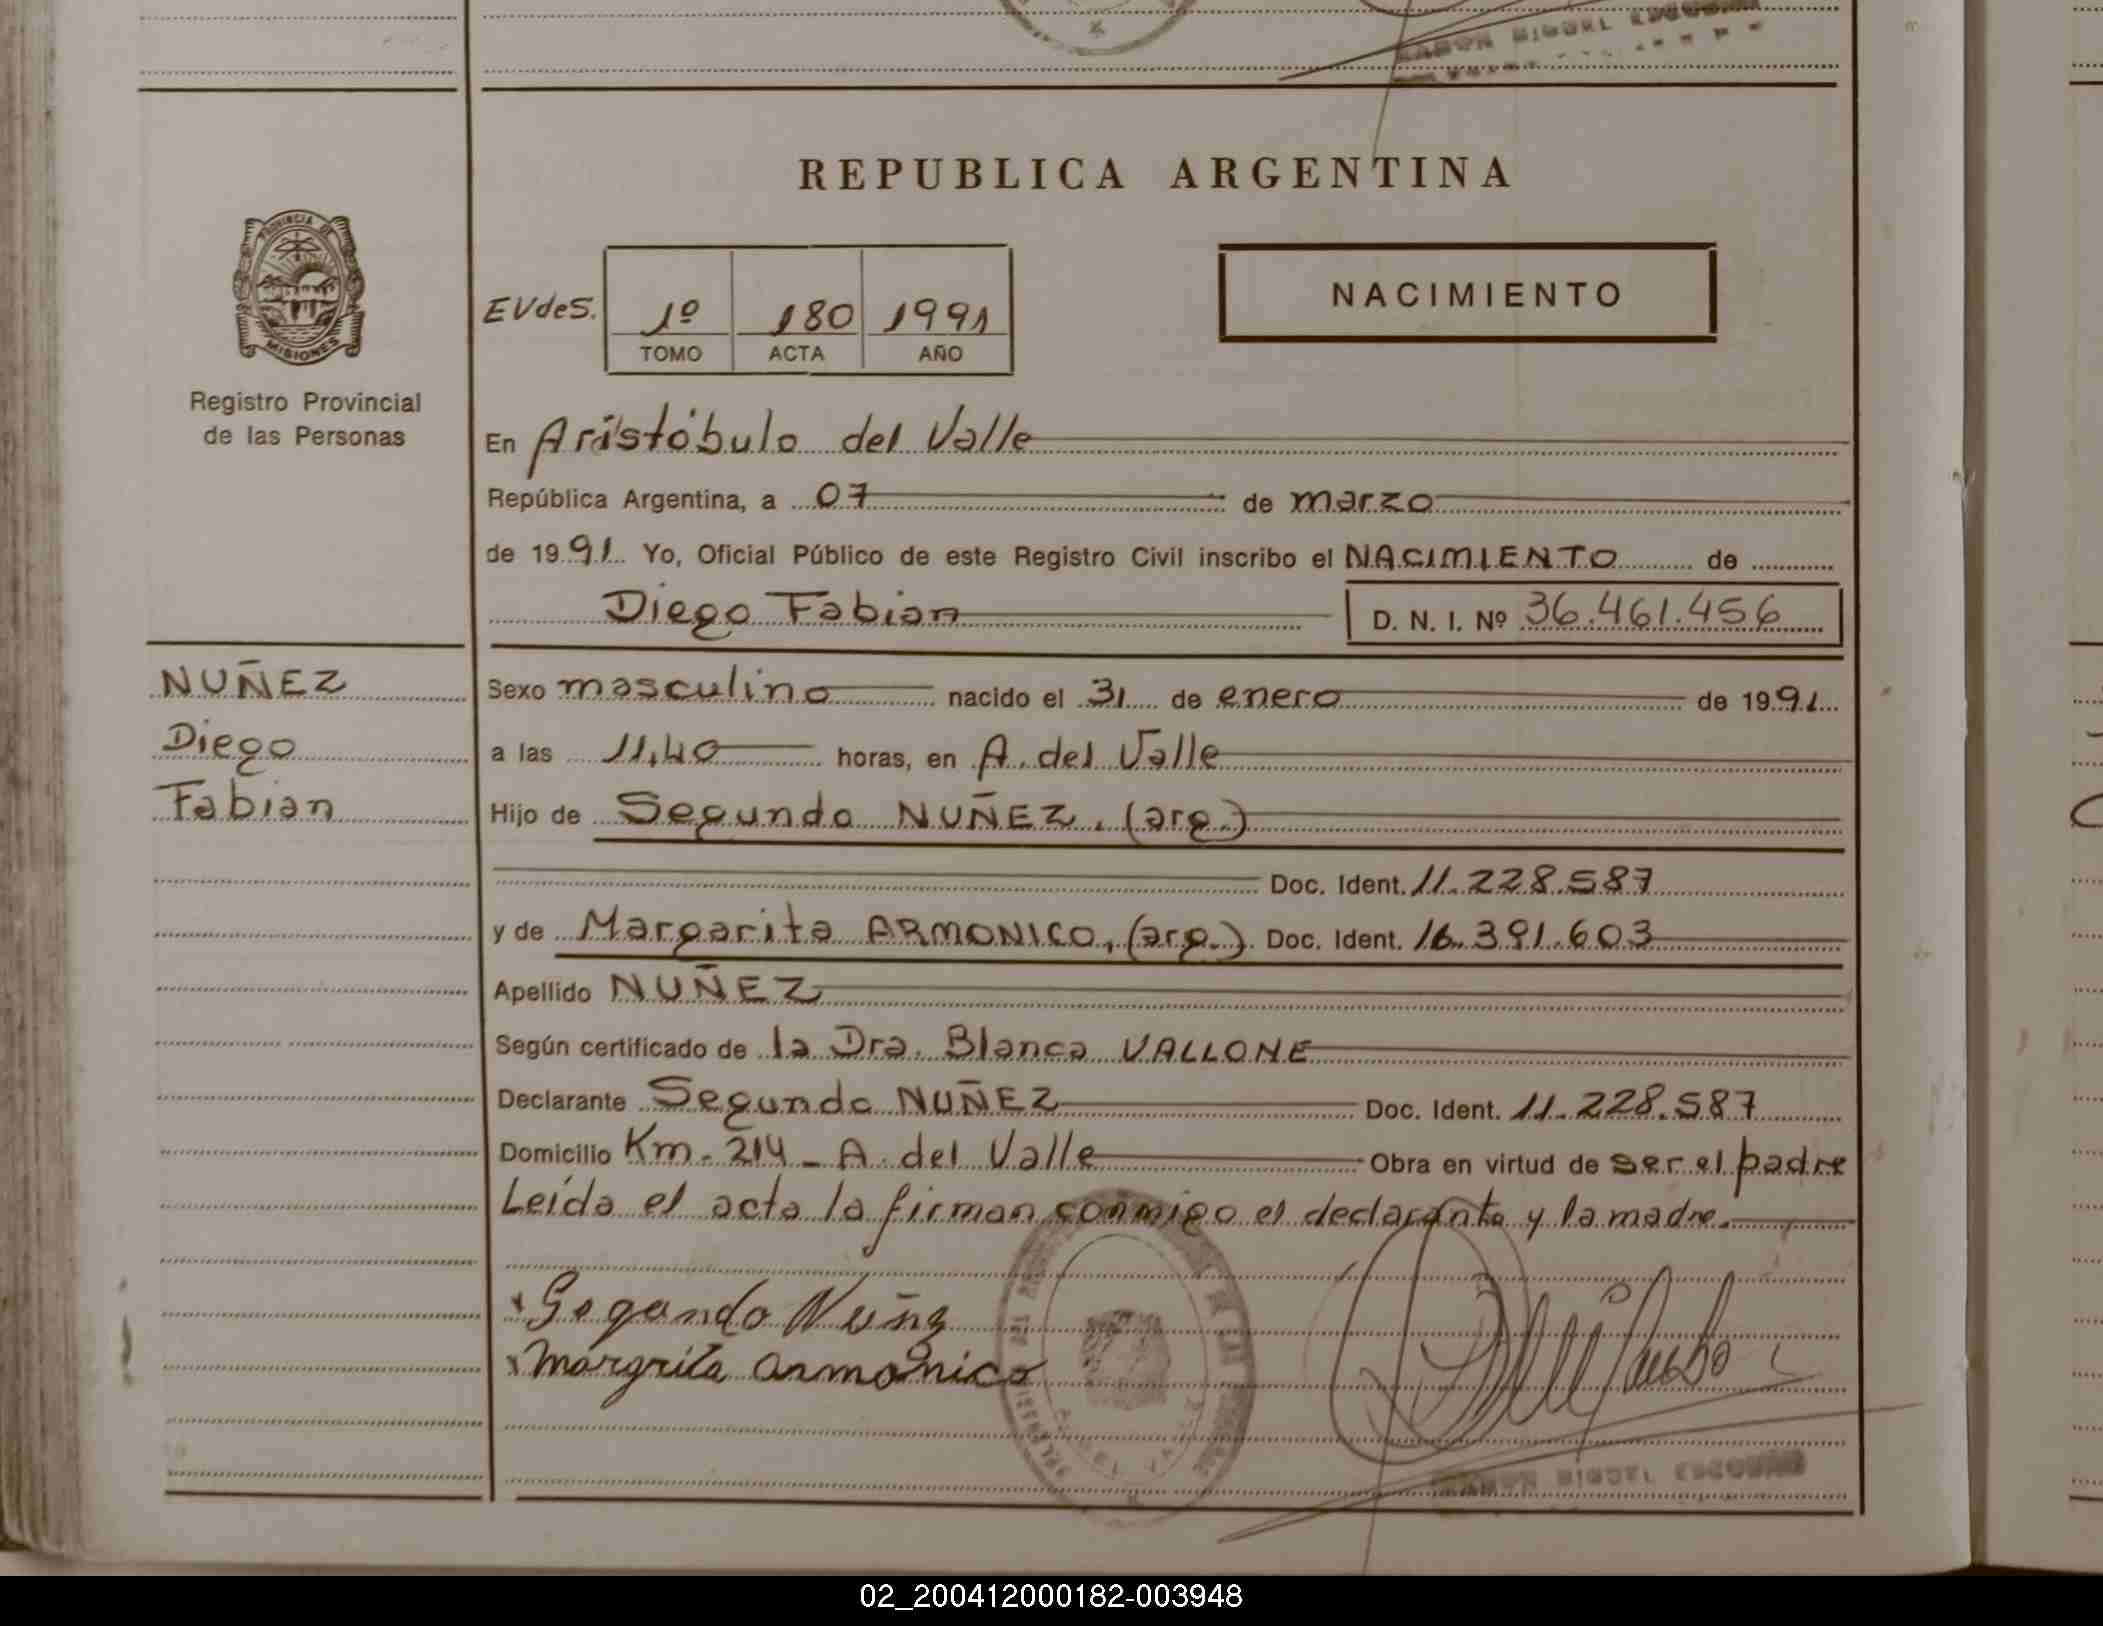 RAMON MIGUEL ESCOBAR
REPUBLICA ARGENTINA
PROVINCIA DE
MISIONES
Registro Provincial
de las Personas
NACIMIENTO
EVdeS. 1º 180 1991
TOMO ACTA AÑO
En Aristóbulo del Valle
República Argentina, a 07 de marzo
de 1991 Yo, Oficial Público de este Registro Civil inscribo el NACIMIENTO de
Diego Fabian D. N. I. Nº 36.461.456
NUÑEZ
Diego
Fabian
Sexo masculino nacido el 31 de enero de 1991
a las 11,40 horas, en A. del Valle
Hijo de Segundo NUÑEZ, (arg.)
Doc. Ident. 11.228.587
y de Margarita ARMONICO, (arg.) Doc. Ident. 16.391.603
Apellido NUÑEZ
Según certificado de la Dra. Blanca VALLONE
Declarante Segundo NUÑEZ Doc. Ident. 11.228.587
Domicilio Km. 214 - A. del Valle Obra en virtud de ser el padre
Leída el acta la firman conmigo el declarante y la madre.
Segundo Nuñz
Margrita armonico
RAMON MIGUEL ESCOBAR
02_200412000182-003948